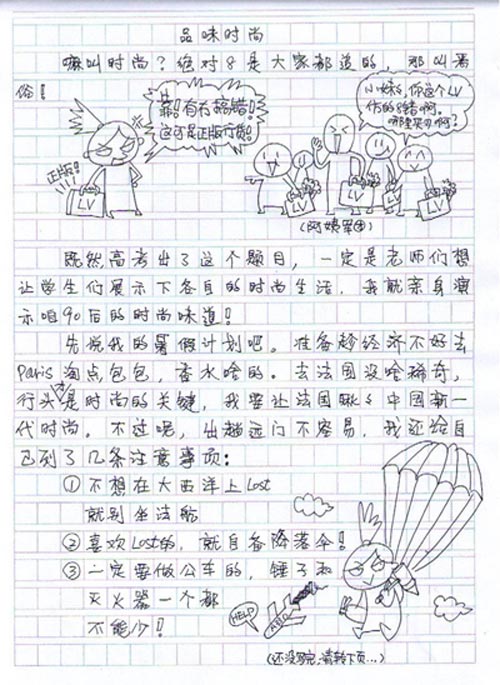 品味时尚
嘛叫时尚？绝对8是大家都追的，那叫恶
俗！
靠！有冇搞错！
这可是正版行货！
小妹S，你这个LV
仿的8错啊。
哪里买的啊？
正版！
LV
LV
LV
LV
LV
(阿姨军团)
既然高考出了这个题目，一定是老师们想
让学生们展示下各自的时尚生活，我就亲身演
示咱90后的时尚味道！
先说我的暑假计划吧。准备趁经济不好去
Paris淘点包包，香水啥的。去法国没啥稀奇，
行头才是时尚的关键，我要让法国瞅S中国新一
代时尚。不过呢，出趟远门不容易，我还给自
己列了几条注意事项：
①不想在大西洋上Lost
就别坐法航
②喜欢Lost的，就自备降落伞！
③一定要做公车的，锤子和
灭火器一个都
不能少！
HELP
(还没写完，请转下页...)